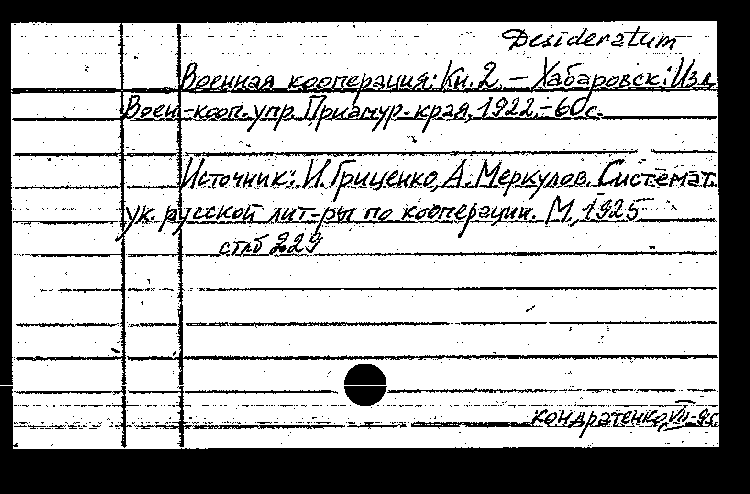 Desideratum
Военная кооперация: Кн. 2. – Хабаровск: Изд.
Воен.-кооп. упр. Приамур. края, 1922. – 60 с.
Источник: И. Гриценко, А. Меркулов. Системат.
ук. русской лит-ры по кооперации. М., 1925
стлб 229
Кондратенко, VII-